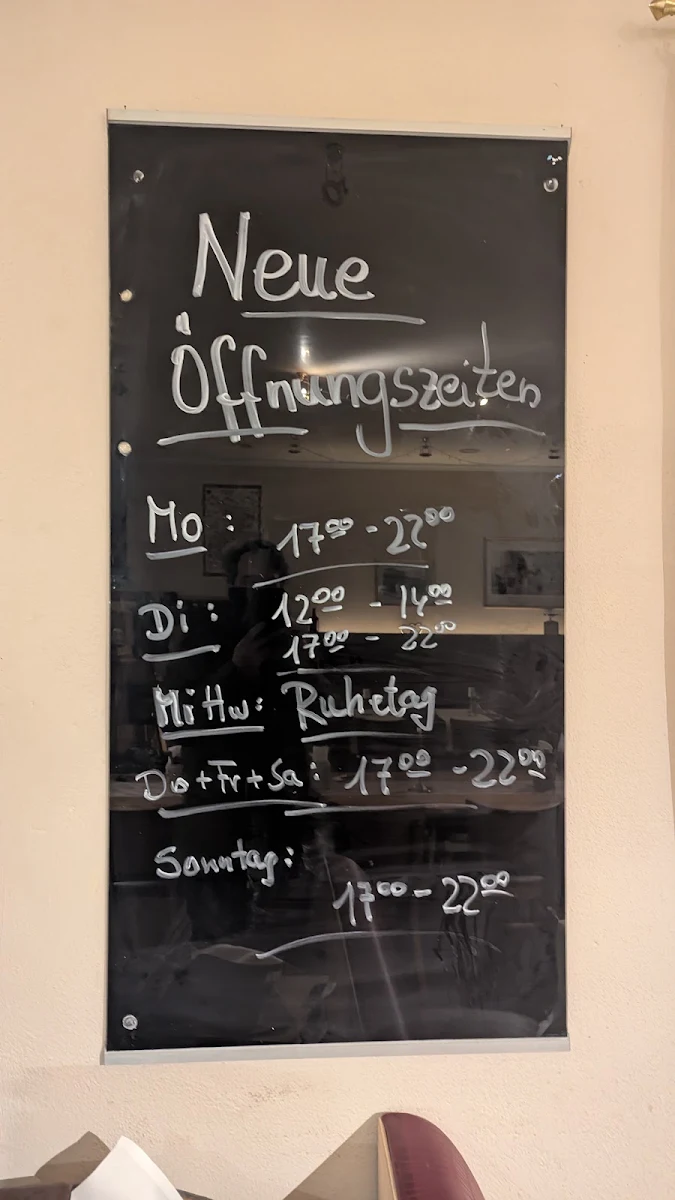 Neue
Öffnungszeiten
Mo: 17⁰⁰ - 22⁰⁰
Di: 12⁰⁰ - 14⁰⁰
17⁰⁰ - 22⁰⁰
Mittw: Ruhetag
Do+Fr+Sa: 17⁰⁰ - 22⁰⁰
Sonntag:
17⁰⁰ - 22⁰⁰